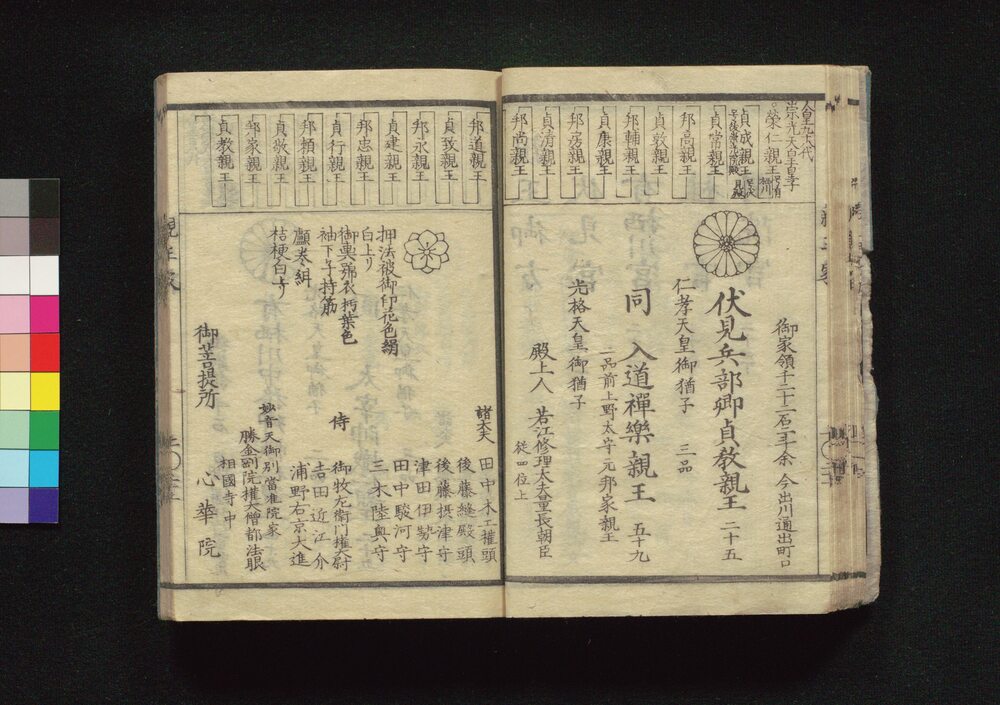 人皇九十八代
崇光天皇皇子
榮仁親王
貞成親王
貞常親王
邦高親王
貞敦親王
邦輔親王
貞康親王
邦房親王
貞清親王
邦尚親王
御家領千二十二石三斗余 今出川通出町口
伏見兵部卿貞教親王 二十五
仁孝天皇御猶子 三品
同 入道禪樂親王 五十九
二品前上野太守元邦家親王
光格天皇御猶子
殿上人 若江修理大夫量長朝臣
従四位上
邦道親王
貞致親王
邦永親王
貞建親王
邦忠親王
貞行親王
邦頼親王
貞敬親王
邦家親王
貞教親王
諸大夫 田中木工権頭
後藤縫殿頭
後藤摂津守
津田伊勢守
田中駿河守
三木陸奥守
押法被御印花色絹
白上り
御輿舁衣朽葉色
袖下二寸持筋
纐巻組
桔梗白上り
侍 御牧左衛門権大尉
吉田近江介
浦野右京大進
妙音天御別當准院家
勝金剛院権大僧都法眼
御菩提所 相國寺中
心華院
親王家